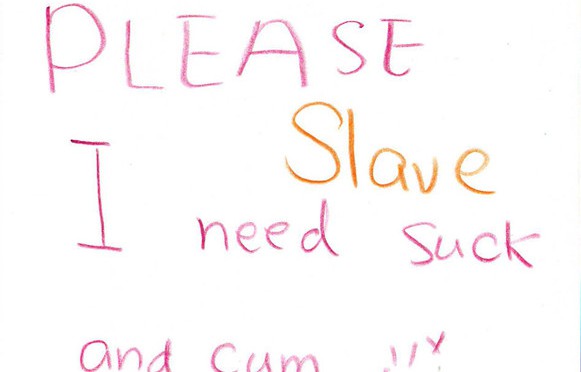 PLEASE
Slave
I need suck
and cum